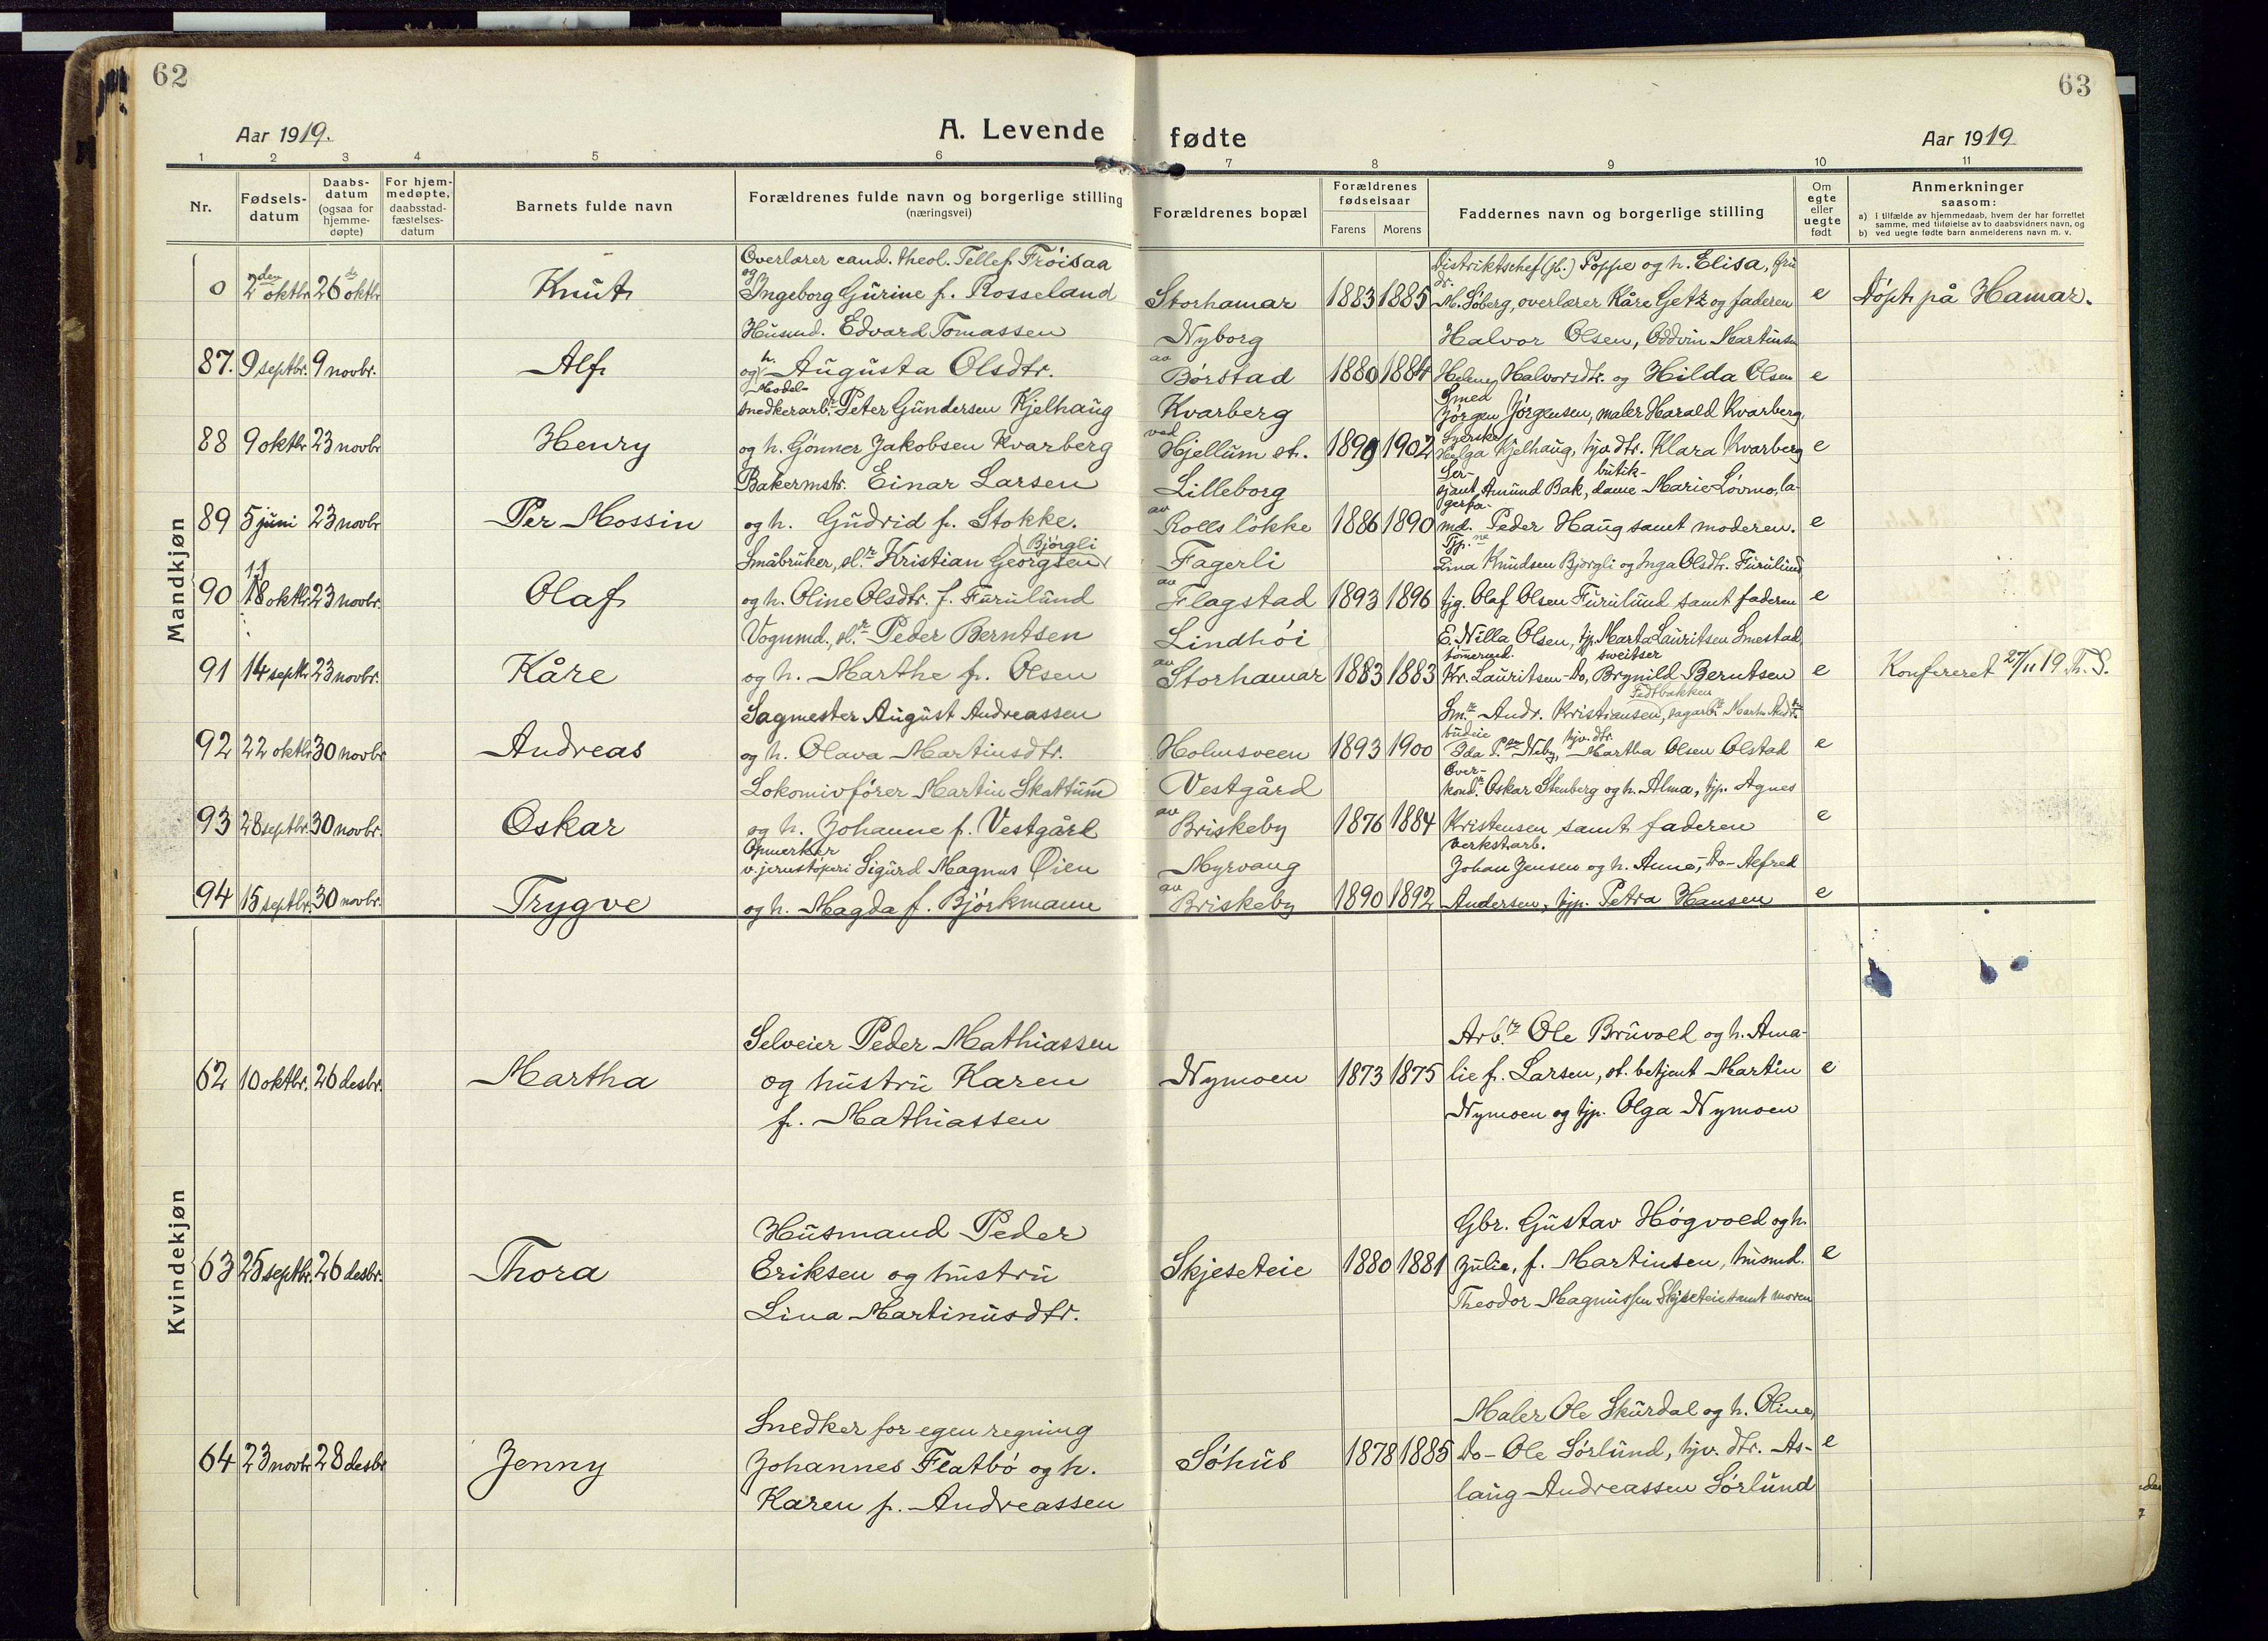 62
63
Aar 1919.
A. Levende fødte
Aar 1919
1 2 3 4 5 6 7 8 9 10 11
Nr.
Fødsels-
datum
Daabs-
datum
(ogsaa for
hjemme-
døpte)
For hjem-
medøpte,
daabsstad-
fæstelses-
datum
Barnets fulde navn
Forældrenes fulde navn og borgerlige stilling
(næringsvei)
Forældrenes bopæl
Forældrenes
fødselsaar
Farens Morens
Faddernes navn og borgerlige stilling
Om
egte
eller
uegte
født
Anmerkninger
saasom:
a) i tilfælde av hjemmedaab, hvem der har forrettet
samme, med tilføielse av to daabsvidners navn, og
b) ved uegte fødte barn anmelderens navn m. v.
Mandkjøn
0 2den oktbr 26de oktbr Knut
Overlærer cand. theol. Tellef Frøisaa
og Ingeborg Gurine f. Rosseland
Storhamar 1883 1885
Distriktschef (jb.) Poppe og h. Elisa, fru
M. Søberg, overlærer Kåre Getz og faderen
e Døpt på Hamar.
87. 9 septbr. 9 novbr. Alf
Husmd. Edvard Tomassen
og h. Augusta Olsdtr.
Nyborg
av Børstad 1880 1884
Halvor Olsen, Oddvin Martinsen
Helene Halvorsdtr. og Hilda Olsen
e
88 9 oktbr 23 novbr Henry
Model-
snedkerarb.r Peter Gundersen Kjelhaug
og h. Gønner Jakobsen Kvarberg
Kvarberg
ved Hjellum st. 1899 1902
Smed
Jørgen Jørgensen, maler Harald Kvarberg,
Syerske
Helga Kjelhaug, hjv. dtr. Klara Kvarberg
e
89 5 juni 23 novbr Per Mossin
Bakermstr. Einar Larsen
og h. Gudrid f. Stokke.
Lilleborg
av Rolls løkke 1886 1890
Ser- butik-
sjant Amund Bak, dame Marie Løvmo, la-
gerfor-
md. Peder Haug samt moderen.
e
90 18 11 oktbr 23 novbr. Olaf
Småbruker, sl.r Kristian Georgsen (Bjørgli)
og h. Oline Olsdtr. f. Furulund
Fagerli
av Flagstad 1893 1896
Tjp.ne
Lina Knudsen Bjørgli og Inga Olsdtr. Furulund
tjg. Olaf Olsen Furulund samt faderen
e
91 14 septbr 23 novbr. Kåre
Vognmd., sl.r Peder Berntsen
og h. Marthe f. Olsen
Lindhøi
av Storhamar 1883 1883
E. Nilla Olsen, tjp. Marta Lauritsen Smestad
tømermd. sweitser
Kr. Lauritsen - do, Brynild Berntsen
e Konfereret 27/11 19 Th. S.
92 22 oktbr 30 novbr Andreas
Sagmester August Andreassen
og h. Olava Martinsdtr.
Holmsveen 1893 1900
Sm.r Andr. Kristiansen Fedtbakken, sagarb.r
budeie hjv. dtr.
Ida P. Neby, Martha Olsen Olstad
e
93 28 septbr. 30 novbr. Oskar
Lokomivfører Martin Skattum
og h. Johanne f. Vestgård
Vestgård
av Briskeby 1876 1884
Over-
kond.r Oskar Stenberg og h. Alma, tjp. Agnes
Kristensen samt faderen
e
94 15 septbr. 30 novbr. Trygve
Opmerker
v. jernstøperi Sigurd Magnus Øien
og h. Magda f. Bjørkmann
Myrvang
av Briskeby 1890 1892
Verkst.arb.
Johan Jensen og h. Anne, do - Alfred
Andersen, tjp. Petra Hansen
e
Kvindekjøn
62 10 oktbr. 26 desbr. Martha
Selveier Peder Mathiassen
og hustru Karen
f. Mathiassen
Nymoen 1873 1875
Arb.r Ole Bruvold og h. Ama-
lie f. Larsen, st. betjent Martin
Nymoen og tjp. Olga Nymoen
e
63 25 septbr. 26 desbr. Thora
Husmand Peder
Eriksen og hustru
Lina Martinusdtr.
Skjeseteie 1880 1881
Gbr. Gustav Høgvold og h.
Julie, f. Martinsen, husmd.
Theodor Magnussen Skjeseteie samt moren
e
64 23 novbr 28 desbr Jenny
Snedker for egen regning
Johannes Flatbø og h.
Karen f. Andreassen
Søhus 1878 1885
Maler Ole Skurdal og h. Oline,
do - Ole Sørlund, hjv. dtr. As-
laug Andreassen Sørlund
e